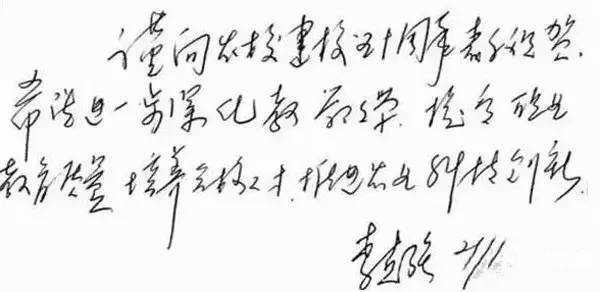 谨向农校建校五十周年表示祝贺.
希望进一步深化教改革,提高职业
教育质量,培养合格人才,推进农业科技创新.
李克强 21/1